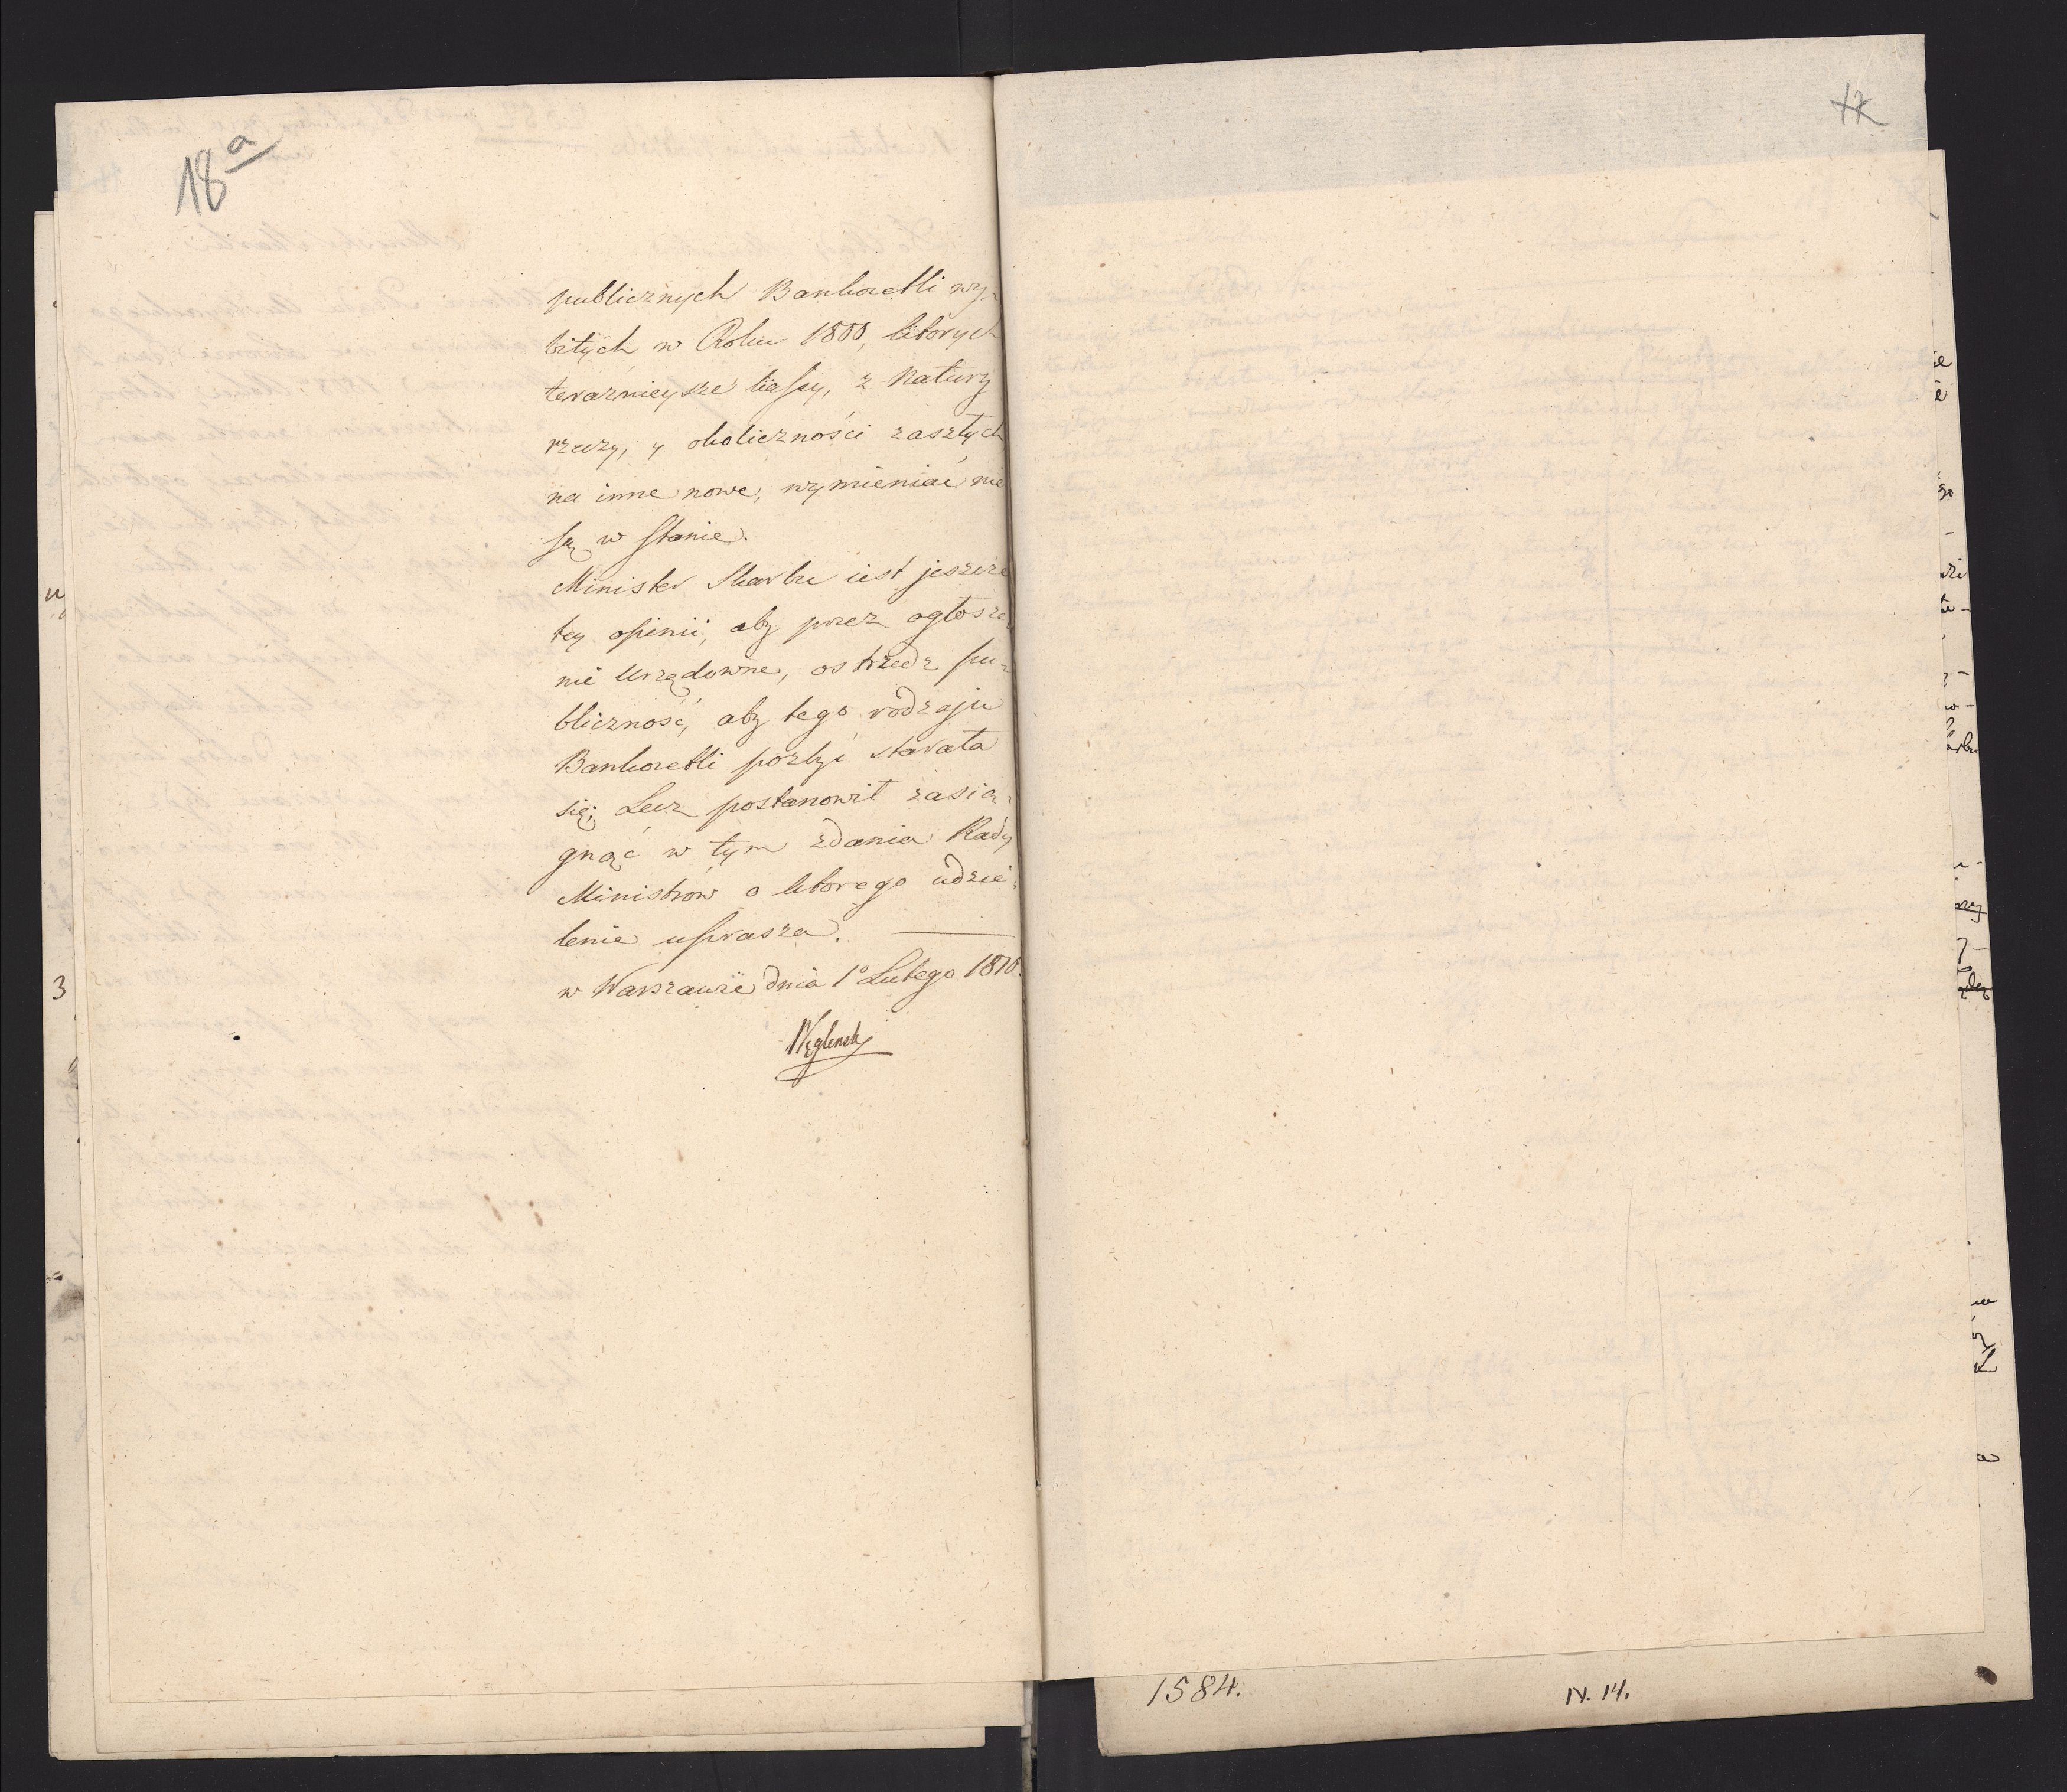 18a
publicznych Bankocetli wy-
bitych w Roku 1800, których
teraznieysze kassy, z Natury
rzeczy, y okoliczności zaszłych
na inne nowe, wymieniać nie
są w stanie.
Minister Skarbu iest jeszcze
tey opinii, aby przez ogłosze
nie Urzędowne, ostrzedz pu-
bliczność, aby tego rodzaju
Bankocetli pozbyć starała
się; Lecz postanowił zasią-
gnąć w tym zdania Rady
Ministrów o którego udzie-
lenie uprasza.
w Warszawie dnia 1º Lutego 1810.
Węgleński
1584.
IV. 14.